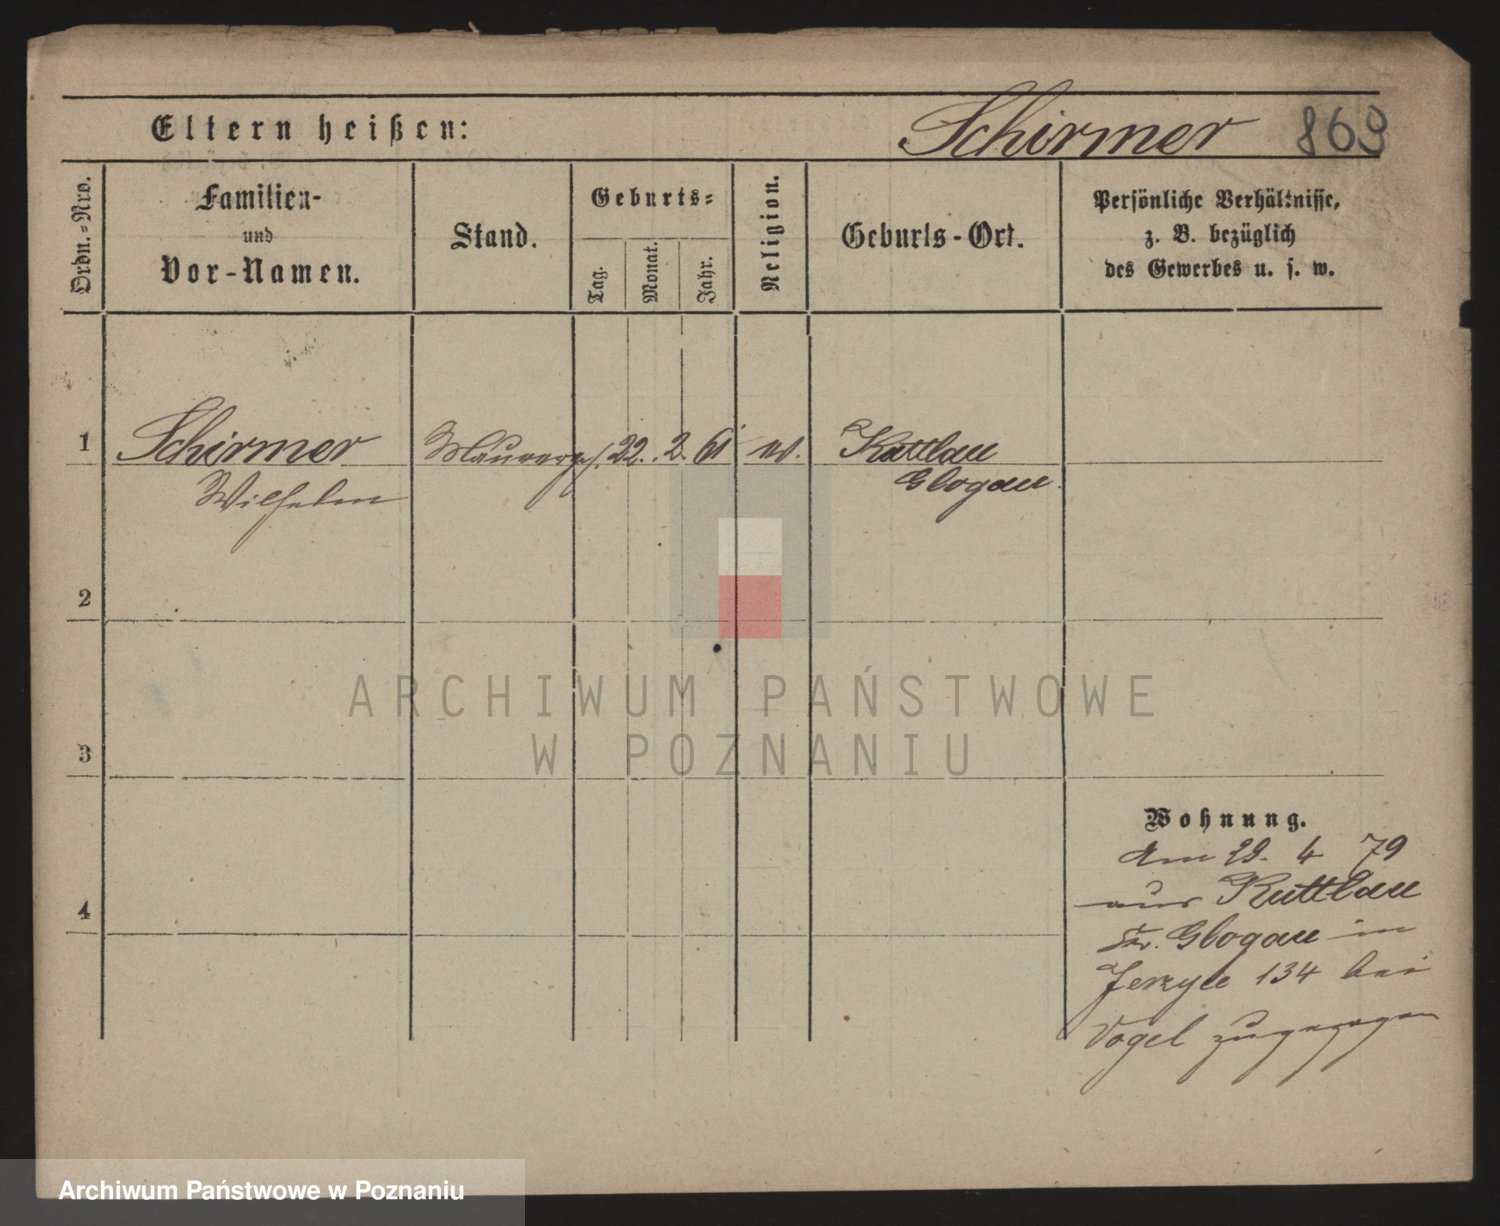 Eltern heißen:
Schirmer 869
Ordn.=Nro.
Familien-
und
Vor-Namen.
Stand.
Geburts=
Tag.
Monat.
Jahr.
Religion.
Geburts-Ort.
Persönliche Verhältnisse,
z. B. bezüglich
des Gewerbes u. s. w.
1 Schirmer Maurerges. 22. 2. 61 ev. Kuttlau
Wilhelm Glogau.
2
ARCHIWUM PAŃSTWOWE
W POZNANIU
3
Wohnung.
Am 29. 4 79
aus Kuttlau
4
Kr. Glogau in
Jerzyce 134 bei
Vogel zugezogen
Archiwum Państwowe w Poznaniu